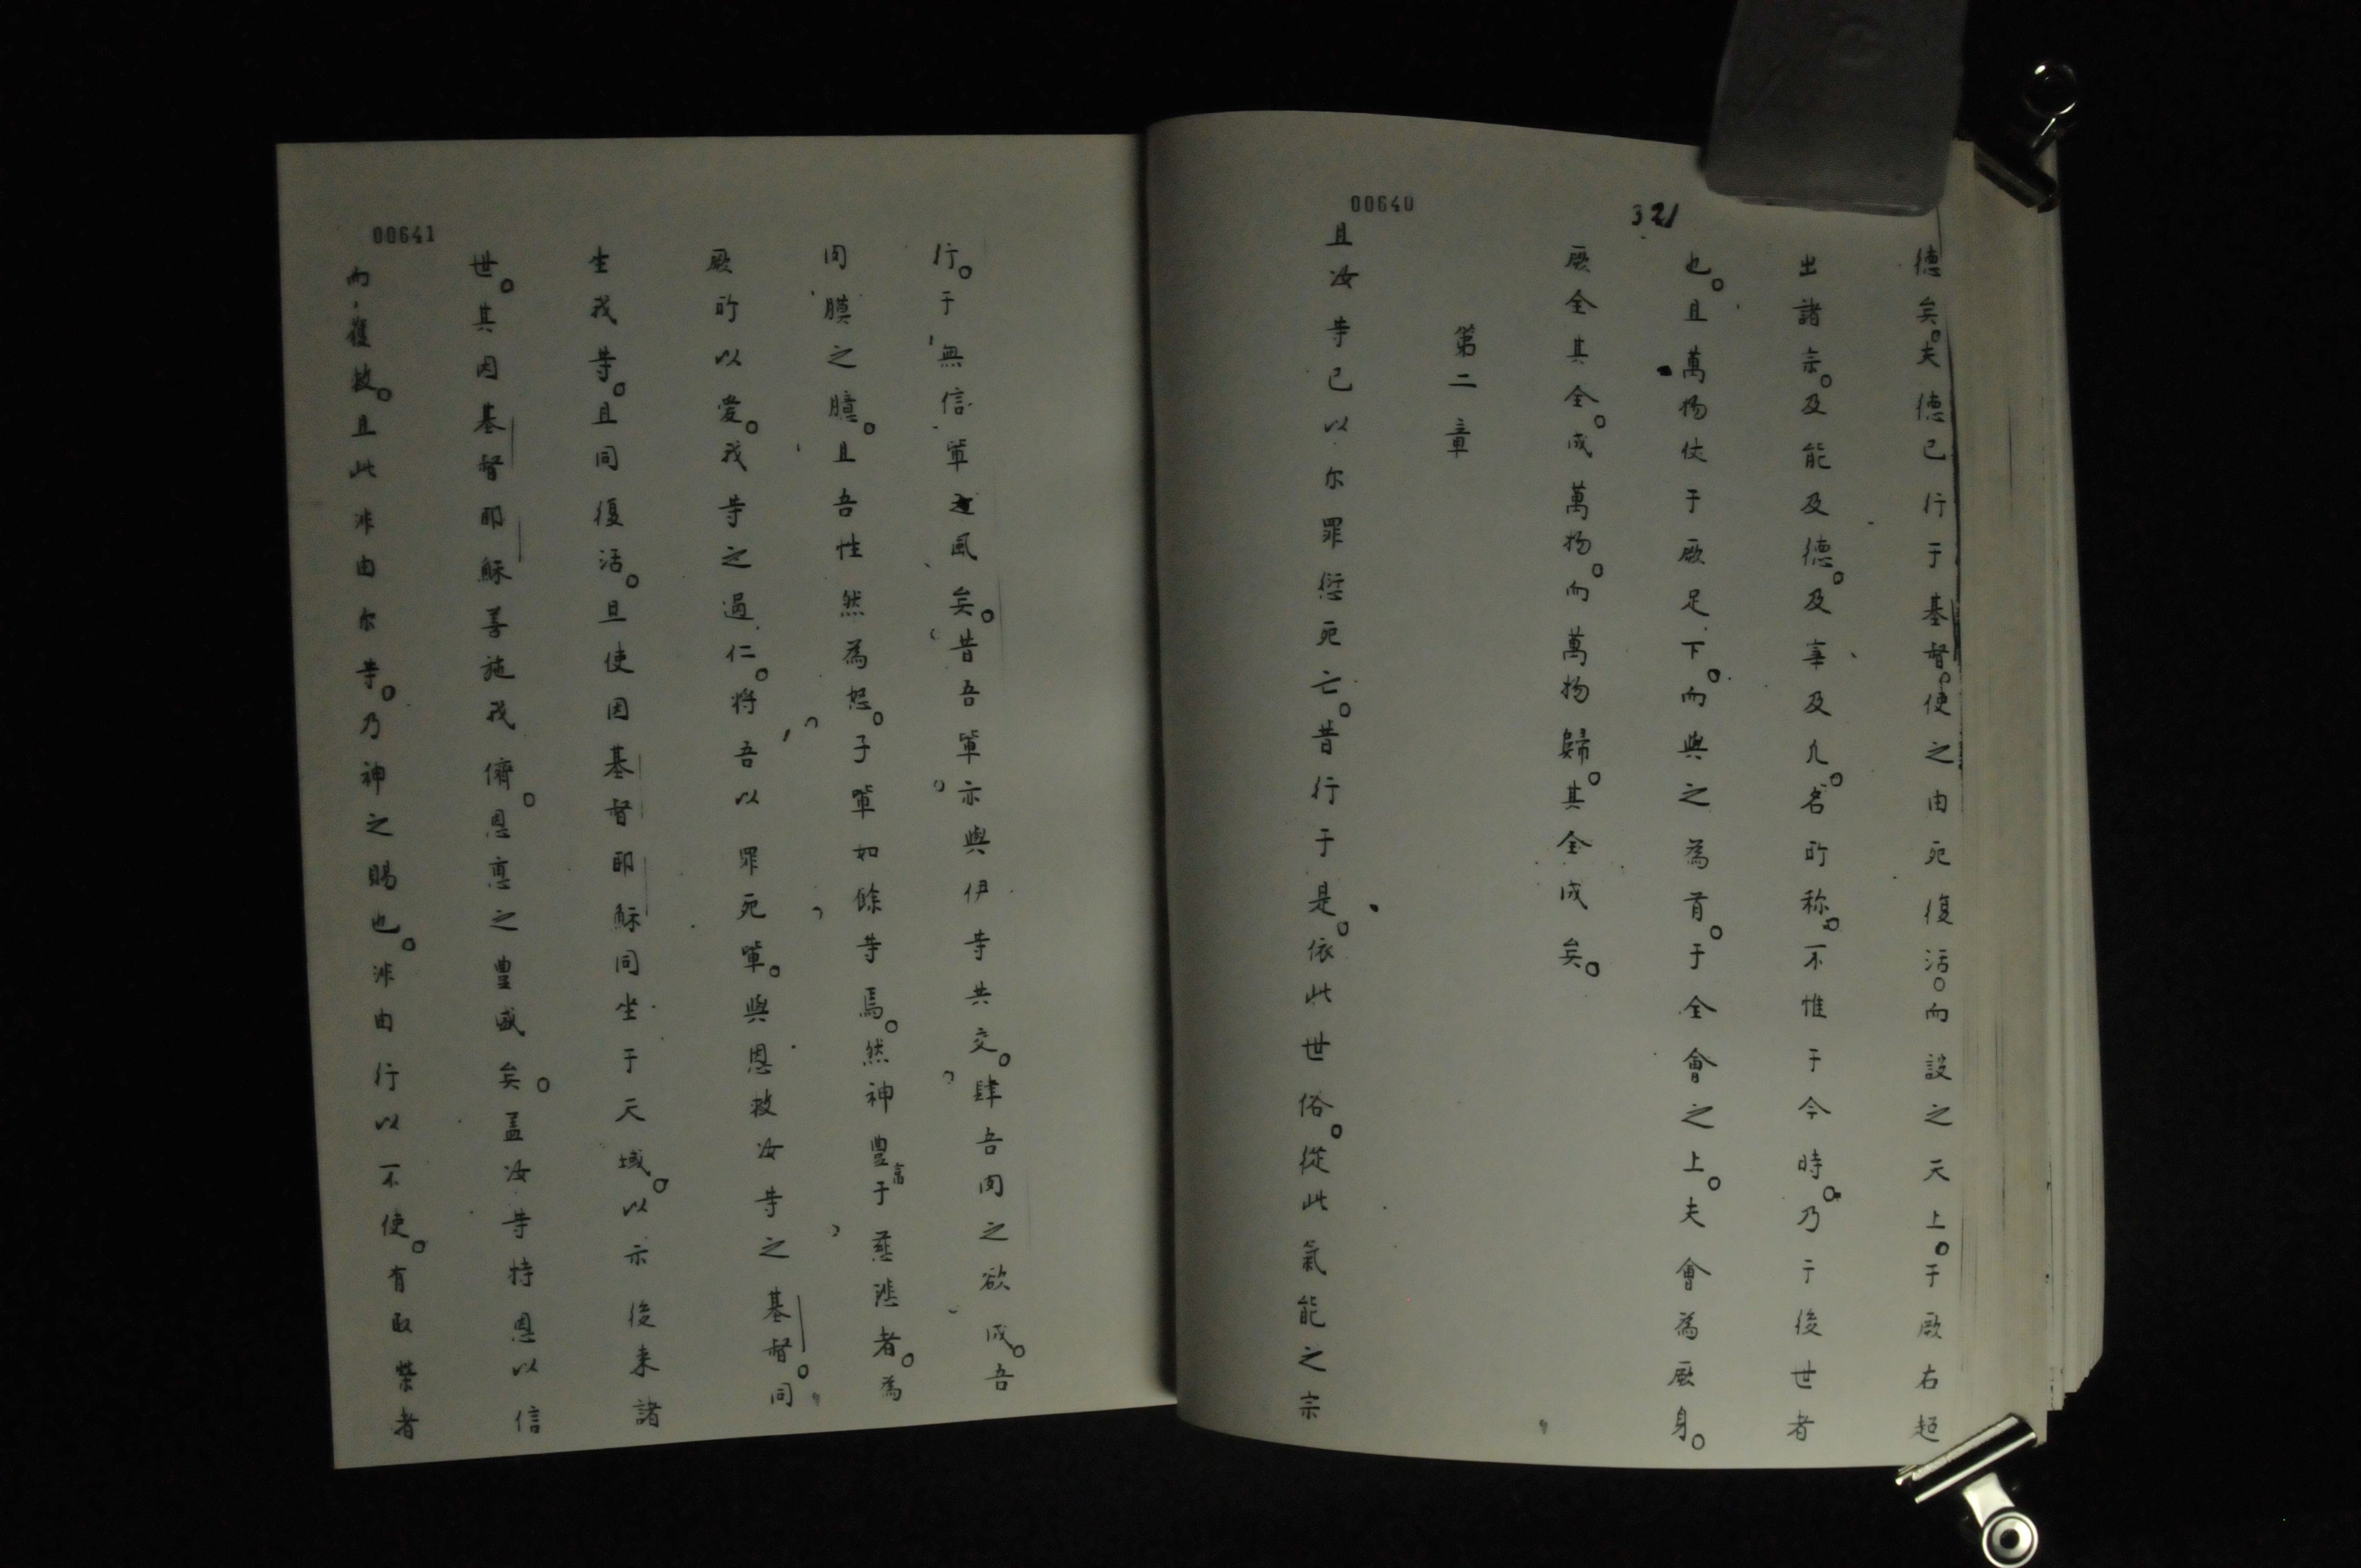 00640
321
德矣。夫德已行于基督。使之由死復活。而設之天上。于厥右超
出諸宗。及能及德。及宰及凡。名所称。不惟于今時。乃于後世者
也。且萬物伏于厥足下。而與之為首。于全會之上。夫會為厥身。
厥全其全。成萬物。而萬物歸。其全成矣。
第二章
且汝等已以尔罪愆死亡。昔行于是。依此世俗。從此氣能之宗
00641
行。于無信軰之風矣。昔吾軰亦與伊等共交。肆吾肉之欲成。吾
肉膜之臆。且吾性然為怒。子軰如餘等焉。然神豊富于慈悲者。為
厥所以愛。我等之過仁。将吾以罪死軰。與恩救汝等之基督。同
生我等。且同復活。且使因基督耶穌同坐于天域。以示後来諸
世。其因基督耶穌善施我儕。恩惠之豊盛矣。盖汝等特恩以信
而獲救。且此非由尔等。乃神之賜也。非由行以不使。有取榮者